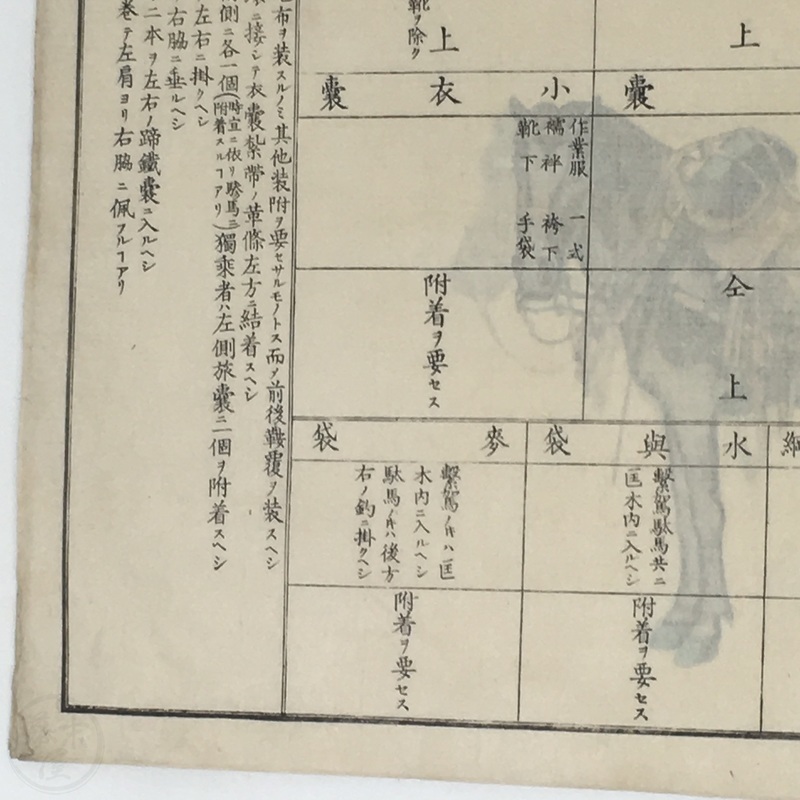 上
上
嚢
小衣嚢
作業服 一式
襦袢 袴下
靴下 手袋
靴ヲ除ク
仝上
附着ヲ要セス
綱
水與袋
麥袋
繋駕駄馬共ニ
匡木内ニ入ルヘシ
繋駕ノ𪜈ハ匡
木内ニ入ルヘシ
駄馬ノ𪜈ハ後方
右ノ鈎ニ掛クヘシ
附着ヲ要セス
附着ヲ要セス
布ヲ装スルノミ其他装附ヲ要セサルモノトス而ソ前後鞍覆ヲ装スヘシ
ニ接シテ衣嚢紮帶ノ革條左方ニ結着スヘシ
側ニ各一個(時宜ニ依リ驂馬ニ附着スルヿアリ)獨乘者ハ左側旅嚢ニ一個ヲ附着スヘシ
左右ニ掛クヘシ
右脇ニ垂ルヘシ
二本ヲ左右ノ蹄鐵嚢ニ入ルヘシ
巻テ左肩ヨリ右脇ニ佩フルヿアリ